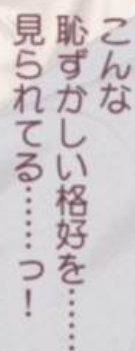 こんな
恥ずかしい格好を……
見られてる……っ！